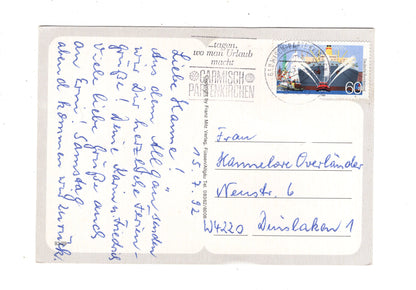 ...tagen,
wo man Urlaub
macht
GARMISCH
PARTENKIRCHEN
60
Liebe Hanne!
Aus dem Allgäu senden
wir Dir herzliche Ferien-
grüße! Deine Karin u. Friedrich
Viele liebe Grüße auch
an Erni! Samstag
abend kommen wir zurück.
15.7.92
by Franz Milz Verlag, Füssen/Allgäu Tel.
Frau
Hannelore Overländer
Neustr. 6
W4220 Dinslaken 1